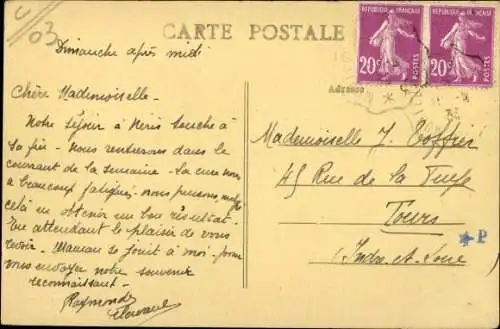 03
CARTE POSTALE
RÉPUBLIQUE FRANÇAISE RÉPUBLIQUE FRANÇAISE
20c POSTES 20c POSTES
Dimanche après midi
Adresse
Chère Mademoiselle -
Notre séjour à Néris touche à
sa fin - Nous rentrerons dans le
courant de la semaine - La cure nous
a beaucoup fatigués - nous pensons, malgré
celà en obtenir un bon résultat -
En attendant le plaisir de vous
revoir - Maman se joint à moi - pour
vous envoyer notre souvenir
reconnaissant -
Raymonde
Mademoiselle J.
45 Rue de la
Tours
(Indre et Loire)
P